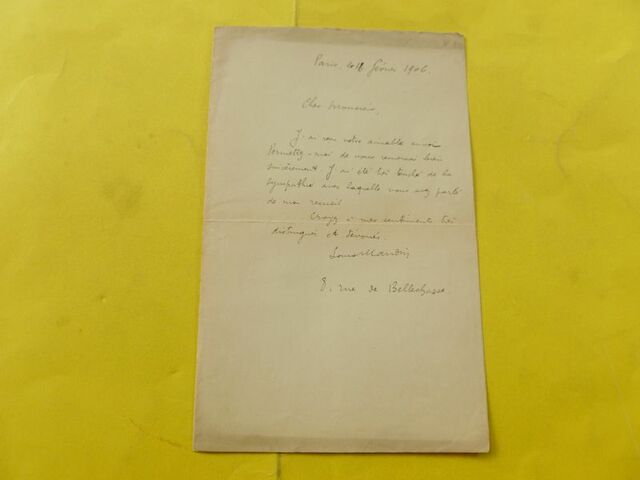 Paris, le 18 février 1906.
Cher Monsieur,
J'ai reçu votre aimable envoi
Permettez-moi de vous remercier bien
sincèrement. J'ai été très touché de la
sympathie avec laquelle vous avez parlé
de mon recueil
Croyez à mes sentiments très
distingués et dévoués.
Louis Mandin
8, rue de Bellechasse.